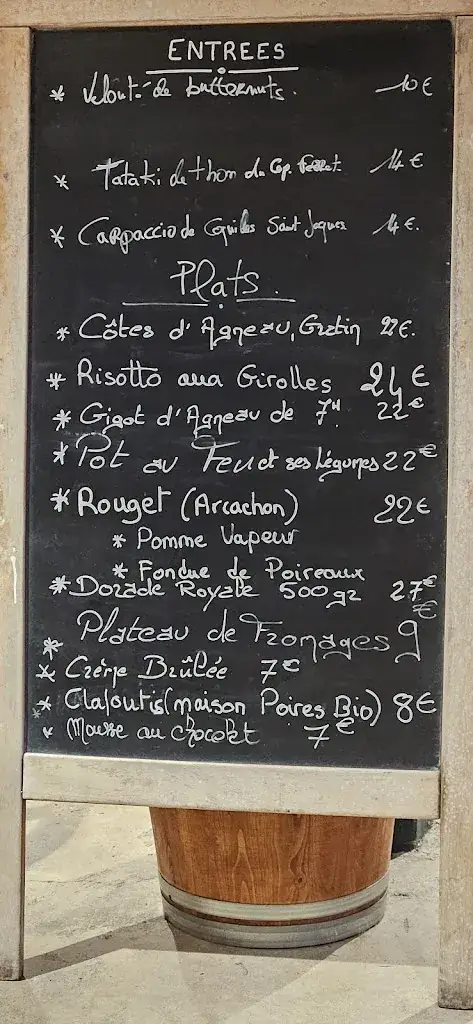 ENTREES
* Velouté de butternuts. 10€
* Tataki de thon du Cap Ferret. 14€
* Carpaccio de Coquilles Saint Jaques 14€.
Plats.
* Côtes d'Agneau, Gratin 22€.
* Risotto aux Girolles 24€
* Gigot d'Agneau de 7H. 22€
* Pot au Feu et ses légumes 22€
* Rouget (Arcachon) 22€
* Pomme Vapeur
* Fondue de Poireaux
* Dorade Royale 500gr 27€
* Plateau de Fromages 9€
* Crème Brûlée 7€
* Clafoutis (maison Poires Bio) 8€
* Mousse au chocolat 7€